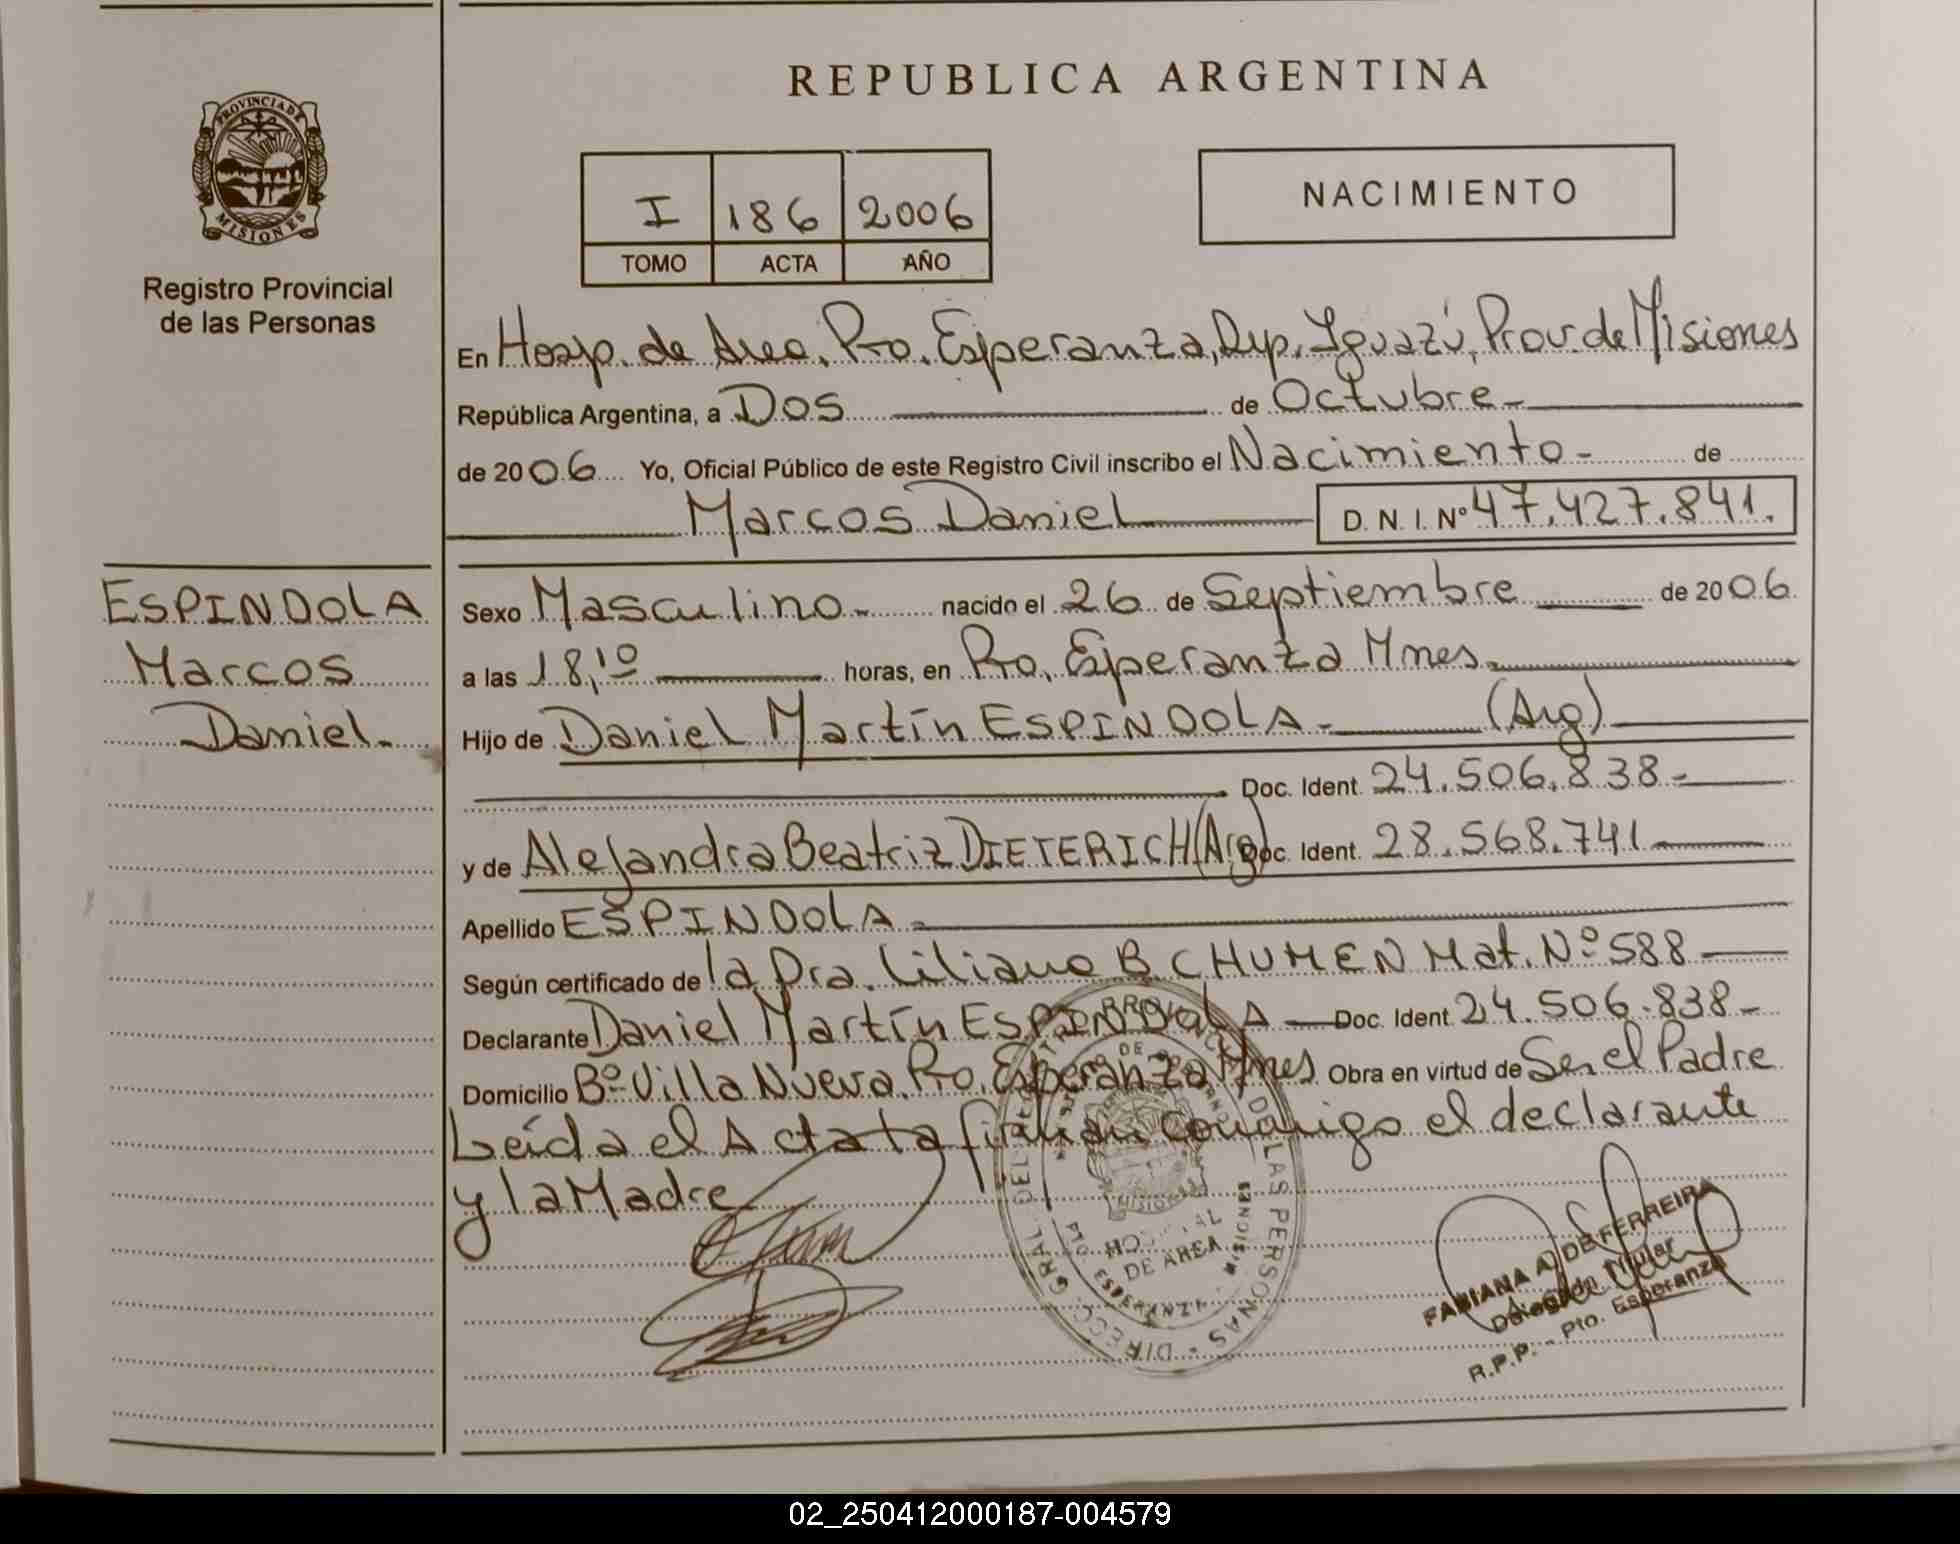 REPUBLICA ARGENTINA
PROVINCIA DE
MISIONES
Registro Provincial
de las Personas
I 186 2006
TOMO ACTA AÑO
NACIMIENTO
En Hosp. de Area. Pto. Esperanza, Dep. Iguazú, Prov. de Misiones
República Argentina, a Dos de Octubre -
de 2006 Yo, Oficial Público de este Registro Civil inscribo el Nacimiento - de
Marcos Daniel D. N. I. Nº 47.427.841.
ESPINDOLA
Marcos
Daniel.
Sexo Masculino - nacido el 26 de Septiembre de 2006
a las 18,10 horas, en Pto. Esperanza Mnes.
Hijo de Daniel Martín ESPINDOLA - (Arg)
Doc. Ident. 24.506.838 -
y de Alejandra Beatriz DIETERICH (Arg) Doc. Ident. 28.568.741
Apellido ESPINDOLA -
Según certificado de la Dra. Liliana B. CHUMEN Mat. Nº 588
Declarante Daniel Martín ESPINDOLA Doc. Ident. 24.506.838 -
Domicilio Bº Villa Nueva. Pto. Esperanza Mnes Obra en virtud de Ser el Padre
Leída el Acta ta firman conmigo el declarante
y la Madre
DIRECC. GRAL. DEL DE LAS PERSONAS
MISIONES
DE AREA
ESPERANZA
FABIANA A. DE FERREIRA
Delegada Titular
R.P.P. - Pto. Esperanza
02_250412000187-004579